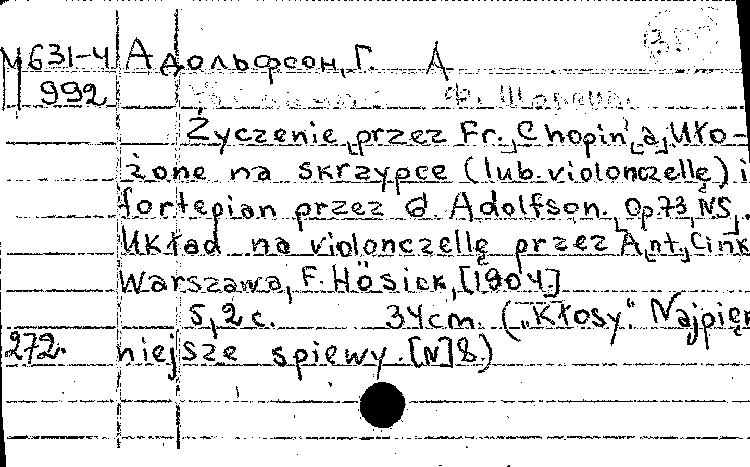 М631-4 Адольфсон, Г. А
992 Ф. Шопен.
Życzenie przez Fr. Chopin'a, uło-
żone na skrzypce (lub violonczellę) i
fortepian przez G. Adolfson. Op. 73, N5.
Układ na violonczellę przez Ant. Cink
Warszawa, F. Hösick, [1904]
5, 2 c. 34 cm. („Kłosy". Najpięk
272. niejsze spiewy. [N] 8.)